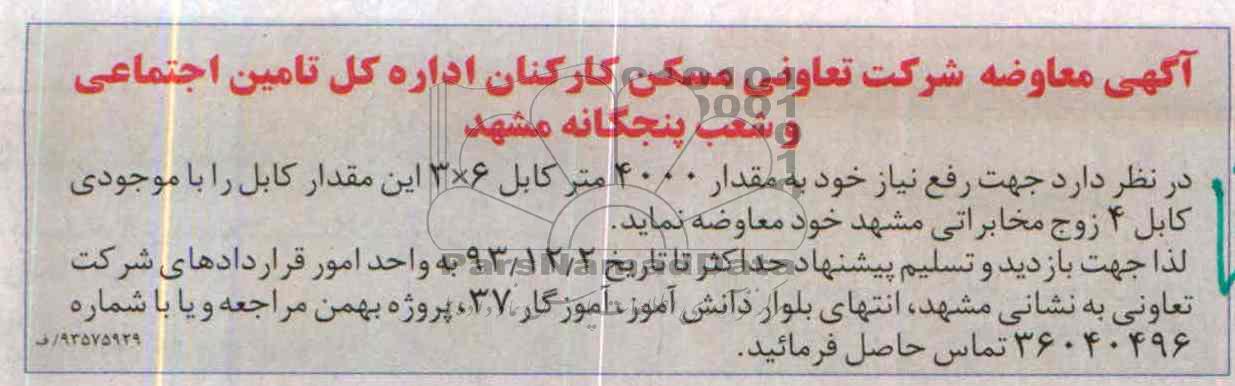 آگهی معاوضه شرکت تعاونی مسکن کارکنان اداره کل تامین اجتماعی
و شعب پنجگانه مشهد
در نظر دارد جهت رفع نیاز خود به مقدار ۴۰۰۰ متر کابل ۶×۳ این مقدار کابل را با موجودی
کابل ۴ زوج مخابراتی مشهد خود معاوضه نماید.
لذا جهت بازدید و تسلیم پیشنهاد حداکثر تا تاریخ ۹۳/۱۲/۲ به واحد امور قراردادهای شرکت
تعاونی به نشانی مشهد، انتهای بلوار دانش آموز، آموزگار ۳۷، پروژه بهمن مراجعه و یا با شماره
۳۶۰۴۰۴۹۶ تماس حاصل فرمائید.
۹۳۵۷۵۹۲۹/ف
ParsNamadData